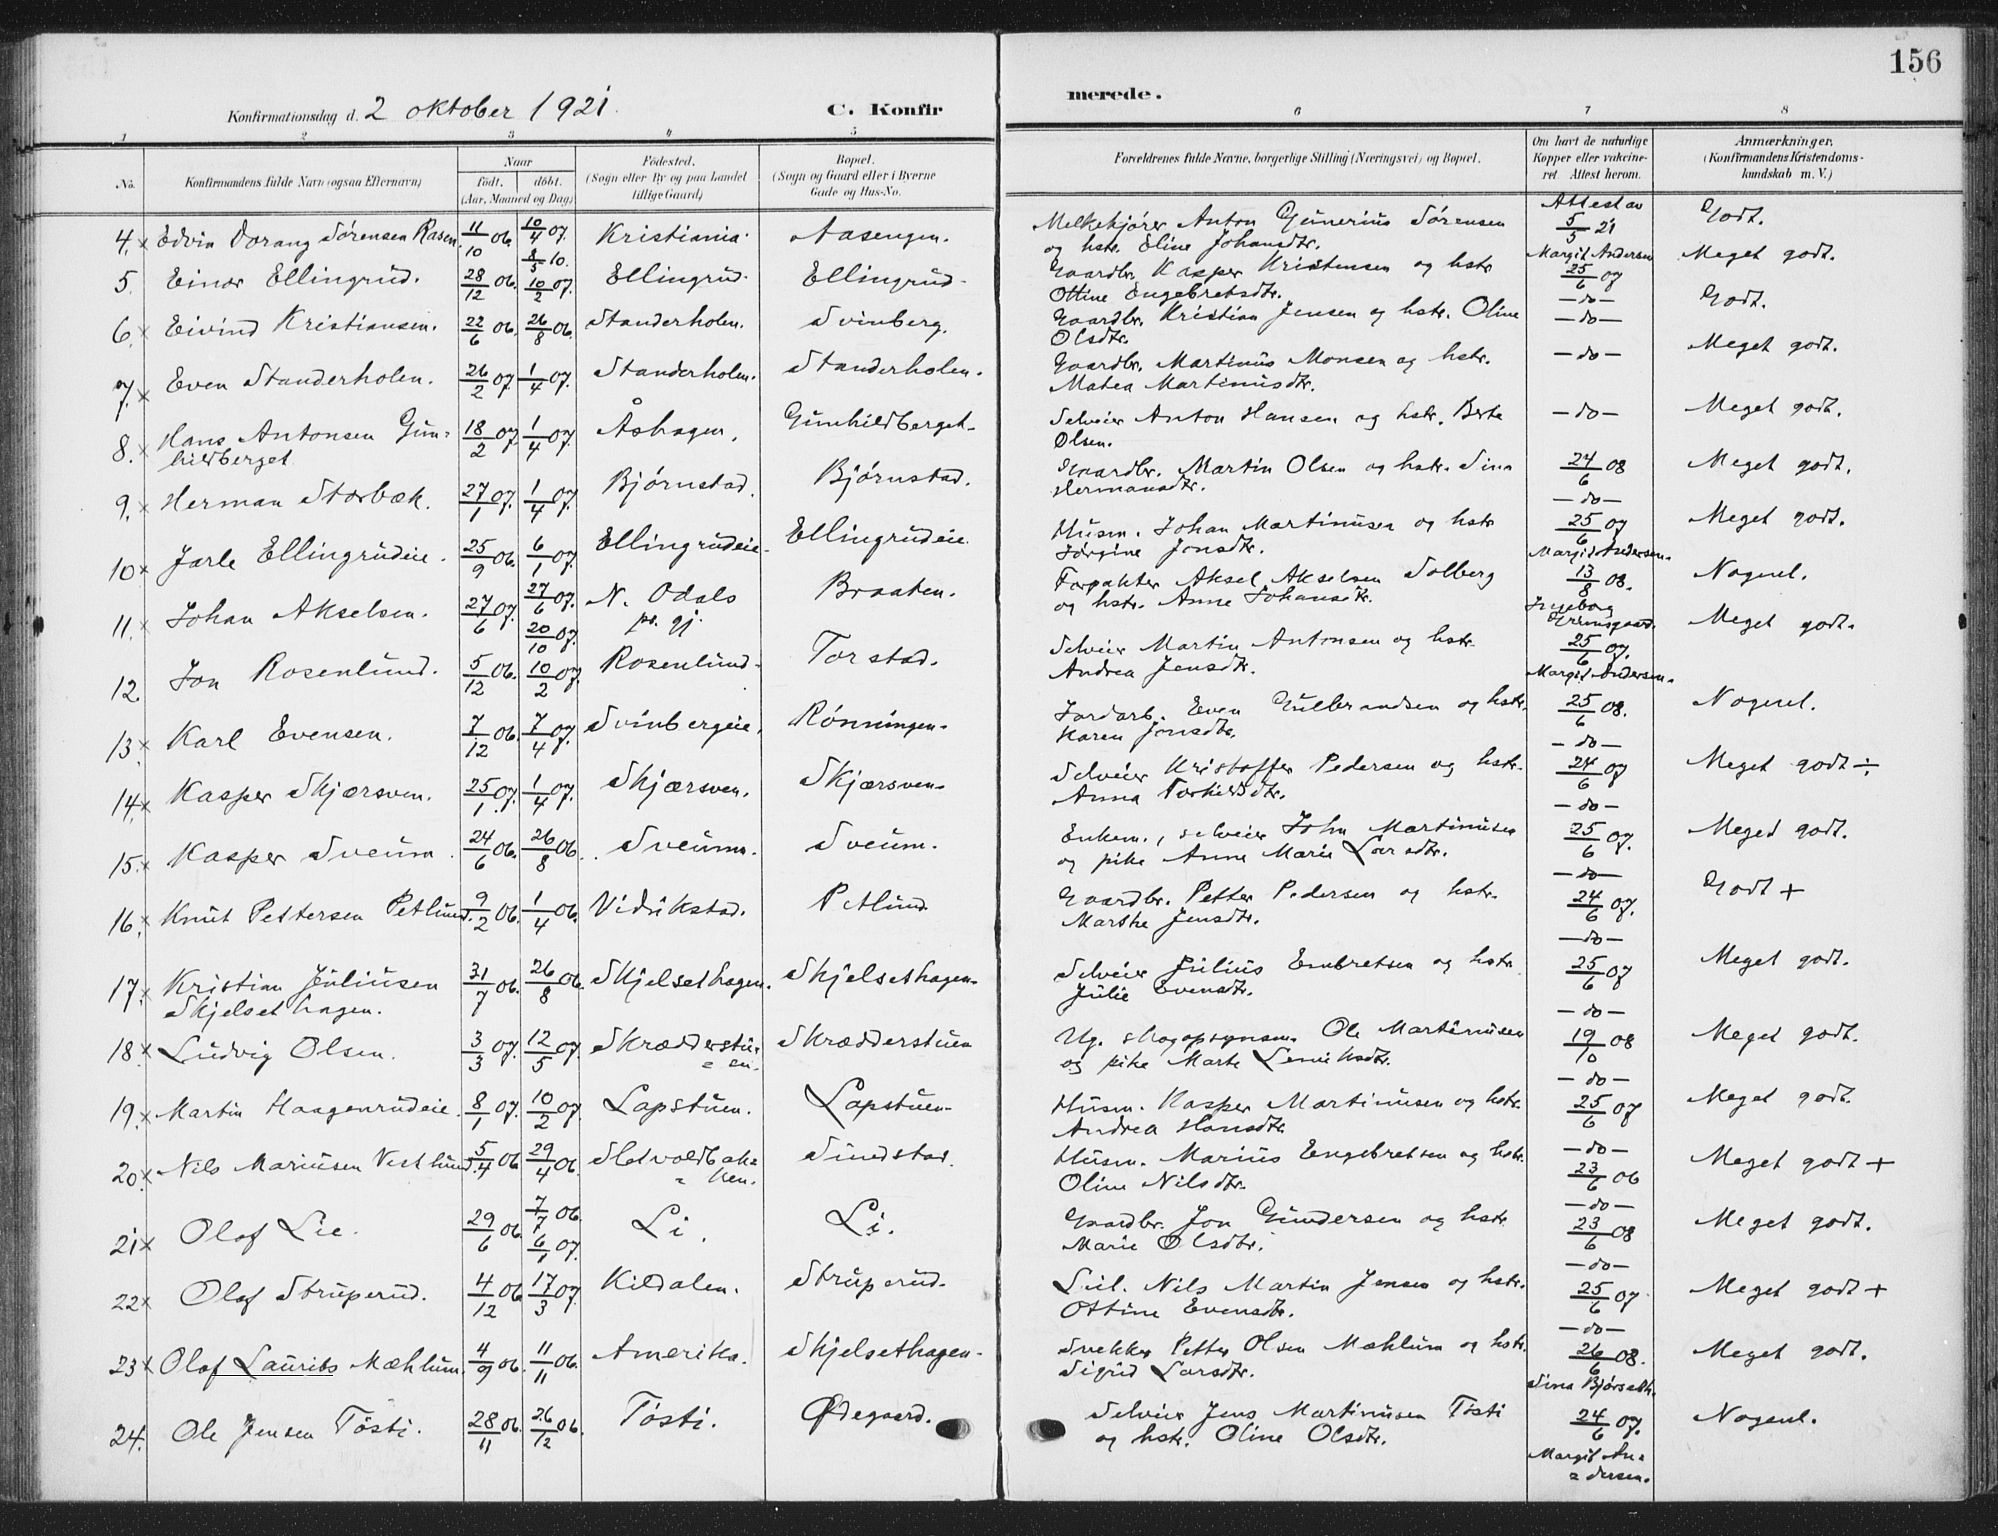 156
Konfirmationsdag d. 2 oktober 1921.
C. Konfirmerede.
1 2 3 4 5 6 7 8
No.
Konfirmandens fulde Navn (ogsaa Efternavn)
Naar
født. døbt.
(Aar, Maaned og Dag)
Fødested.
(Sogn eller By og paa Landet
tillige Gaard)
Bopæl.
(Sogn og Gaard eller i Byerne
Gade og Hus-No.
Forældrenes fulde Navne, borgerlige Stilling (Næringsvei) og Bopæl.
Om havt de naturlige
Kopper eller vakcine-
ret Attest herom.
Anmærkninger.
(Konfirmandens Kristendoms-
kundskab m. V.)
4. x Edvin Dorang Sørensen Rasen 11/10 06. 10/4 07. 8/5 10. Kristiania. Aasengen. Melkekjører Anton Gunerius Sørensen Attest av 5/5 21 Godt.
og hstr. Eline Johansdtr. Margit Andersen
5. Einar Ellingrud. 28/12 06. 10/2 07. Ellingrud. Ellingrud. Gaardbr. Kasper Kristensen og hstr 25/6 07 Meget godt.
Ottine Engebretsdtr. —do—
6. x Eivind Kristiansen. 22/6 06. 26/8 06. Standerholen. Svinberg. Gaardbr. Kristian Jensen og hstr. Oline —do— Godt.
Olsdtr.
7. x Even Standerholen. 26/2 07. 1/4 07. Standerholen. Standerholen. Gaardbr. Martinus Monsen og hstr. —do— Meget godt.
Matea Martinusdtr.
8. x Hans Antonsen Gun- 18/2 07. 1/4 07. Åshagen. Gunhildberget. Selveier Anton Hansen og hstr. Berte —do— Meget godt.
hildberget Olsen.
9. x Herman Storbæk. 27/1 07. 1/4 07. Bjørnstad. Bjørnstad. Gaardbr. Martin Olsen og hstr. Sina 24/6 08 Meget godt.
Hermansdtr. —do—
10. x Jarle Ellingrudeie. 25/9 06. 6/1 07. Ellingrudeie. Ellingrudeie. Husm. Johan Martinusen og hstr 25/6 07 Meget godt.
Jørgine Jonsdtr. Margit Andersen.
11. x Johan Akselsen. 27/6 07. 27/6 07. 20/10 07. N. Odals Braaten. Forpakter Aksel Akselsen Solberg 13/8 08. Nogenl.
pr. gj. og hstr. Anne Johansdtr. Ingeborg
Grinnsgaard.
12. Jon Rosenlund. 5/12 06. 10/2 07. Rosenlund. Torstad. Selveier Martin Antonsen og hstr. 25/6 07. Meget godt.
Andrea Jensdtr. Margit Andersen.
13. x Karl Evensen. 7/12 06. 7/4 07. Svinbergeie. Rønningen. Jordarb. Even Gulbrandsen og hstr. 25/6 08. Nogenl.
Karen Jonsdtr. —do—
14. x Kasper Skjærsven. 25/1 07. 1/4 07. Skjærsven. Skjærsven. Selveier Kristoffer Pedersen og hstr. 24/6 07 Meget godt ÷
Anna Torkildsdtr. —do—
15. x Kasper Sveum. 24/6 06. 26/8 06. Sveum. Sveum. Enkem., selveier John Martinusen 25/6 07. Meget godt.
og pike Anne Marie Larsdtr. —do—
16. x Knut Pettersen Petlund. 9/2 06. 1/4 06. Vidikstad. Petlund. Gaardbr. Petter Pedersen og hstr. 24/6 07. Godt +
Marthe Jensdtr. —do—
17. x Kristian Juliusen 31/7 06. 26/8 06. Skjelsethagen. Skjelsethagen. Selveier Julius Embretsen og hstr 25/6 07 Meget godt.
Skjelsethagen. Julie Evensdtr. —do—
18. x Ludvig Olsen. 3/3 07. 12/5 07. Skrædderstu- Skrædderstuen Ug. skogopsynsm. Ole Martinusen 19/10 08 Meget godt.
= en. og pike Marte Lenriksdtr. —do—
19. x Martin Haagenrudeie. 8/1 07. 10/2 07. Lapstuen. Lapstuen. Husm. Kasper Martinusen og hstr. 25/6 07 Meget godt.
Andrea Hansdtr. —do—
20. x Nils Mariusen Vestlund. 5/4 06. 29/4 06. Sletvoldbak- Sundstad. Husm. Marius Engebretsen og hstr. 23/6 06 Meget godt +
= ken. Oline Nilsdtr. —do—
21. x Olaf Lie. 29/6 06. 7/7 06. 6/1 07. Li. Li. Gaardbr. Jon Gundersen og hstr 23/6 08 Meget godt.
Marie Olsdtr. —do—
22. x Olaf Struperud. 4/12 06. 17/3 07. Kildalen. Struperud. Leil. Nils Martin Jensen og hstr. 25/6 07 Meget godt +
Ottine Evensdtr. —do—
23. x Olaf Laurits Mæhlum. 4/9 06. 11/11 06. Amerika. Skjelsethagen. Snekker Petter Olsen Mæhlum og hstr. 26/6 08. Meget godt.
Sigrid Larsdtr. Sina Bjørseth.
24. Ole Jensen Tøsti. 28/11 06. 26/12 06. Tøsti. Ødegaard. Selveier Jens Martinusen Tøsti 24/6 07. Nogenl.
og hstr. Oline Olsdtr. Margit An-
= dersen.